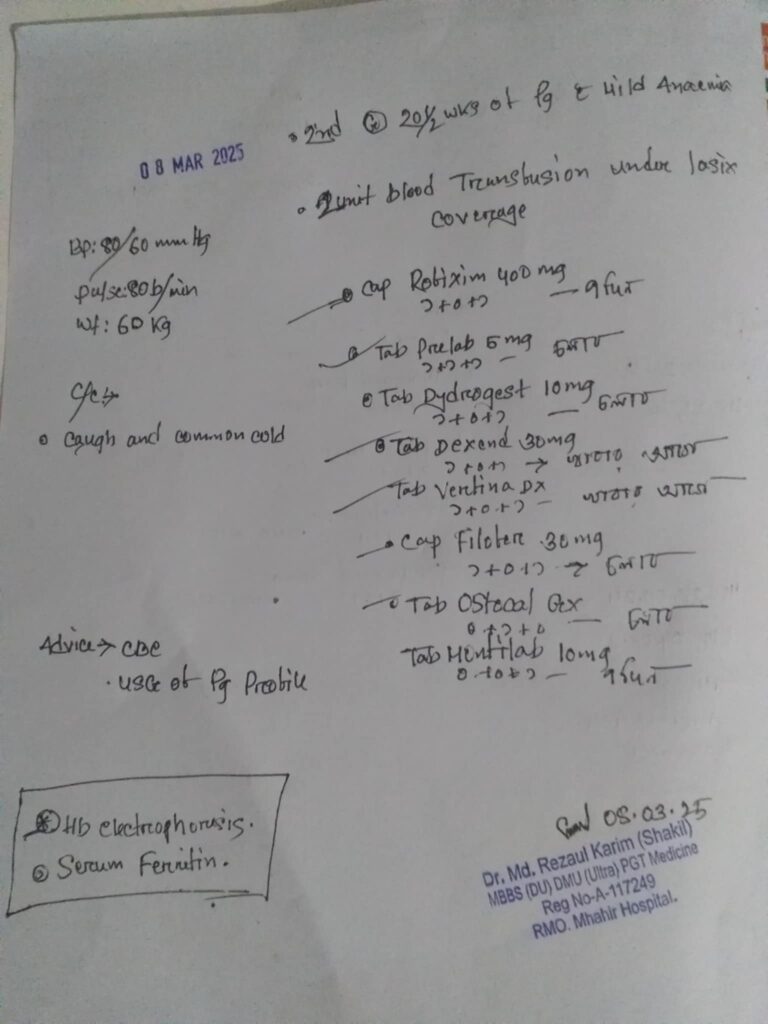 08 MAR 2025
• 2nd G 20½ wks of Pg c̄ Mild Anaemia
• 2 unit blood Transfusion under lasix
coverage
BP: 80/60 mmHg
pulse: 80 b/min
Wt: 60 Kg
C/C →
• Caugh and common cold
• Cap Rofixim 400 mg
১+০+১ — ৭দিন
• Tab Prelab 5 mg
১+১+১ — চলবে
• Tab Dydrogest 10mg
১+০+১ — চলবে
• Tab Dexend 30mg
১+০+১ → খাবার আগে
Tab Vertina DX
১+০+১ — খাবার আগে
• Cap Filofer 30 mg
১+০+১ → চলবে
• Tab Ostocal Gx
০+১+০ — চলবে
Tab Montilab 10mg
০+০+১ — ৭দিন
Advice → CBC
• USG of Pg Profile
① Hb electrophorosis.
② Serum Ferritin.
08.03.25
Dr. Md. Rezaul Karim (Shakil)
MBBS (DU) DMU (Ultra) PGT Medicine
Reg No-A-117249
RMO. Mhahir Hospital.